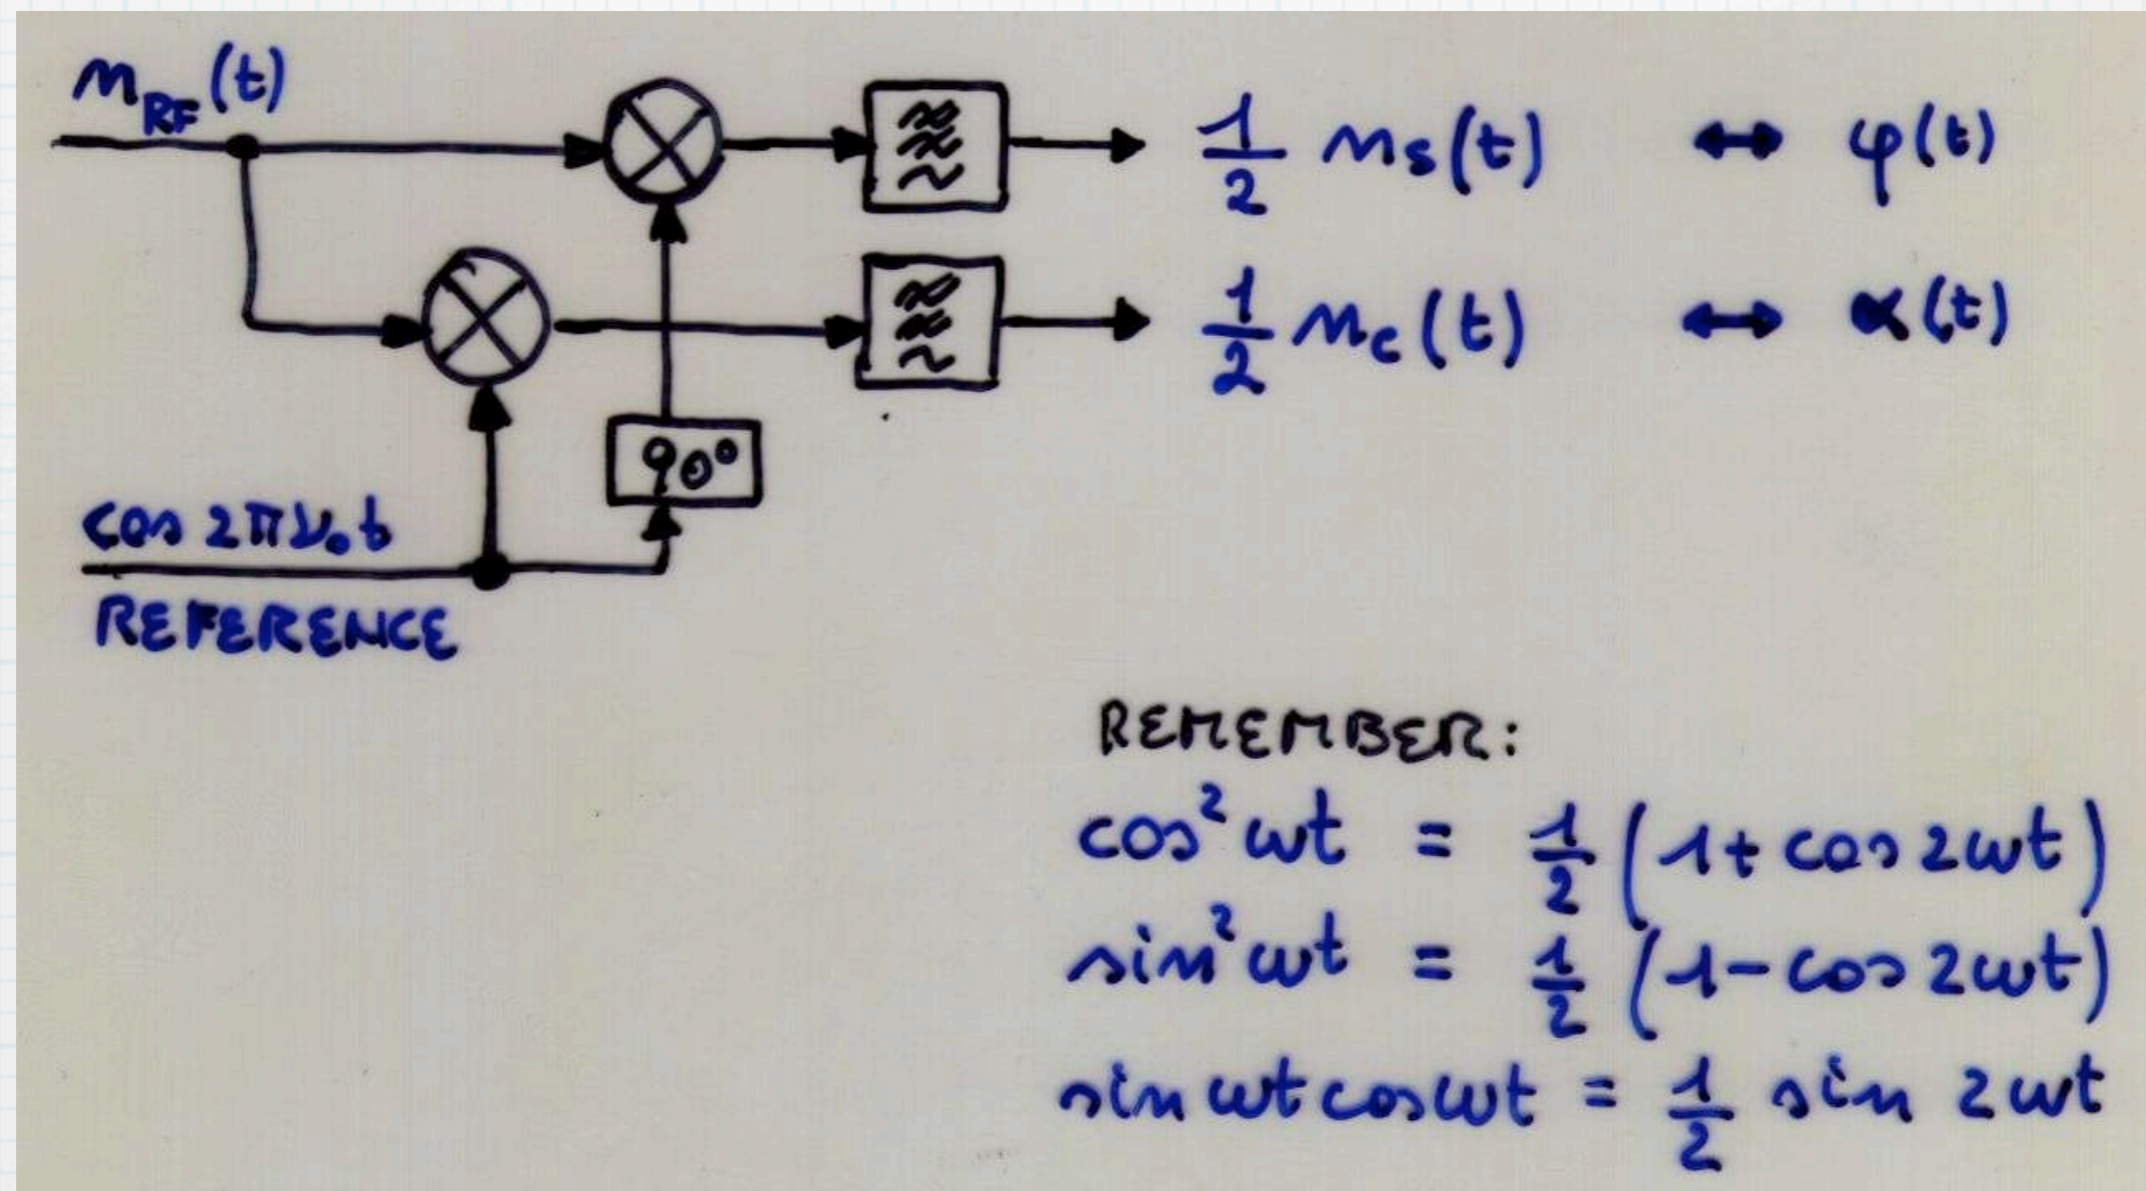 n_RF(t)
1/2 n_s(t) ↔ φ(t)
1/2 n_c(t) ↔ α(t)
90°
cos 2πν₀t
REFERENCE
REMEMBER:
cos² ωt = 1/2 (1 + cos 2ωt)
sin² ωt = 1/2 (1 − cos 2ωt)
sin ωt cos ωt = 1/2 sin 2ωt